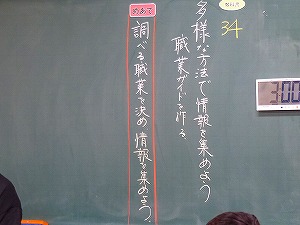 教科書
34
多様な方法で情報を集めよう
職業ガイドを作る
めあて
調べる職業を決め情報を集めよう。
300